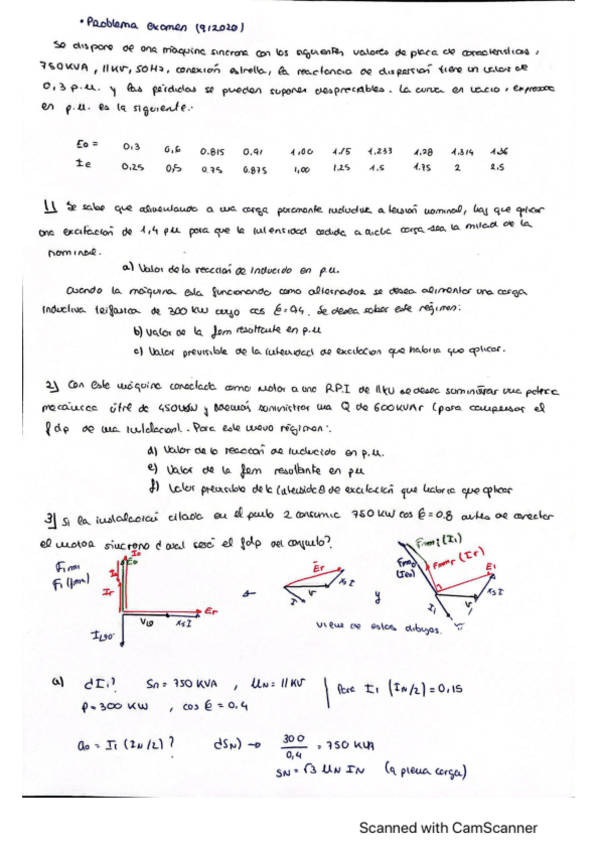 • Problema examen (9/2020)
Se dispone de una máquina síncrona con los siguientes valores de placa de características,
750 KVA, 11 KV, 50 Hz, conexión estrella, la reactancia de dispersión tiene un valor de
0,3 p.u. y las pérdidas se pueden suponer despreciables. La curva en vacío, expresada
en p.u. es la siguiente:
Eo = 0,3 0,6 0.815 0,91 1,00 1.15 1.233 1,28 1.314 1.36
Ie 0,25 0,5 0,75 0.875 1,00 1,25 1.5 1.75 2 2,5
1) Se sabe que alimentando a una carga puramente inductiva a tensión nominal, hay que aplicar
una excitación de 1,4 p.u para que la intensidad cedida a dicha carga sea la mitad de la
nominal.
a) Valor de la reacción de inducido en p.u.
Cuando la máquina esta funcionando como alternador se desea alimentar una carga
inductiva trifásica de 300 KW cuyo cos φ = 0,4. Se desea saber este régimen:
b) Valor de la fem resultante en p.u
c) Valor previsible de la intensidad de excitación que habría que aplicar.
2) Con este máquina conectada como motor a una R.P.I de 11 KV se desea suministrar una potencia
mecánica útil de 450 KW y además suministrar una Q de 600 KVAr (para compensar el
f.d.p de una instalación). Para este nuevo régimen:
d) Valor de la reacción de inducido en p.u.
e) Valor de la fem resultante en pu
f) Valor previsible de la intensidad de excitación que habría que aplicar
3) Si la instalación citada en el punto 2 consumie 750 KW cos φ = 0.8 antes de conectar
el motor síncrono ¿cual será el fdp del conjunto?
Er
Xs I
V
I
y
Er
Xs I
viene de estos dibujos.
a) ¿Ii? Sn = 750 KVA, UN = 11 KV | Para Ii (IN/2) = 0,15
P = 300 KW, cos φ = 0,4
ao = Ii (IN/2)? ¿SN) → 300/0,4 = 750 KVA
SN = √3 UN IN (a plena carga)
Scanned with CamScanner